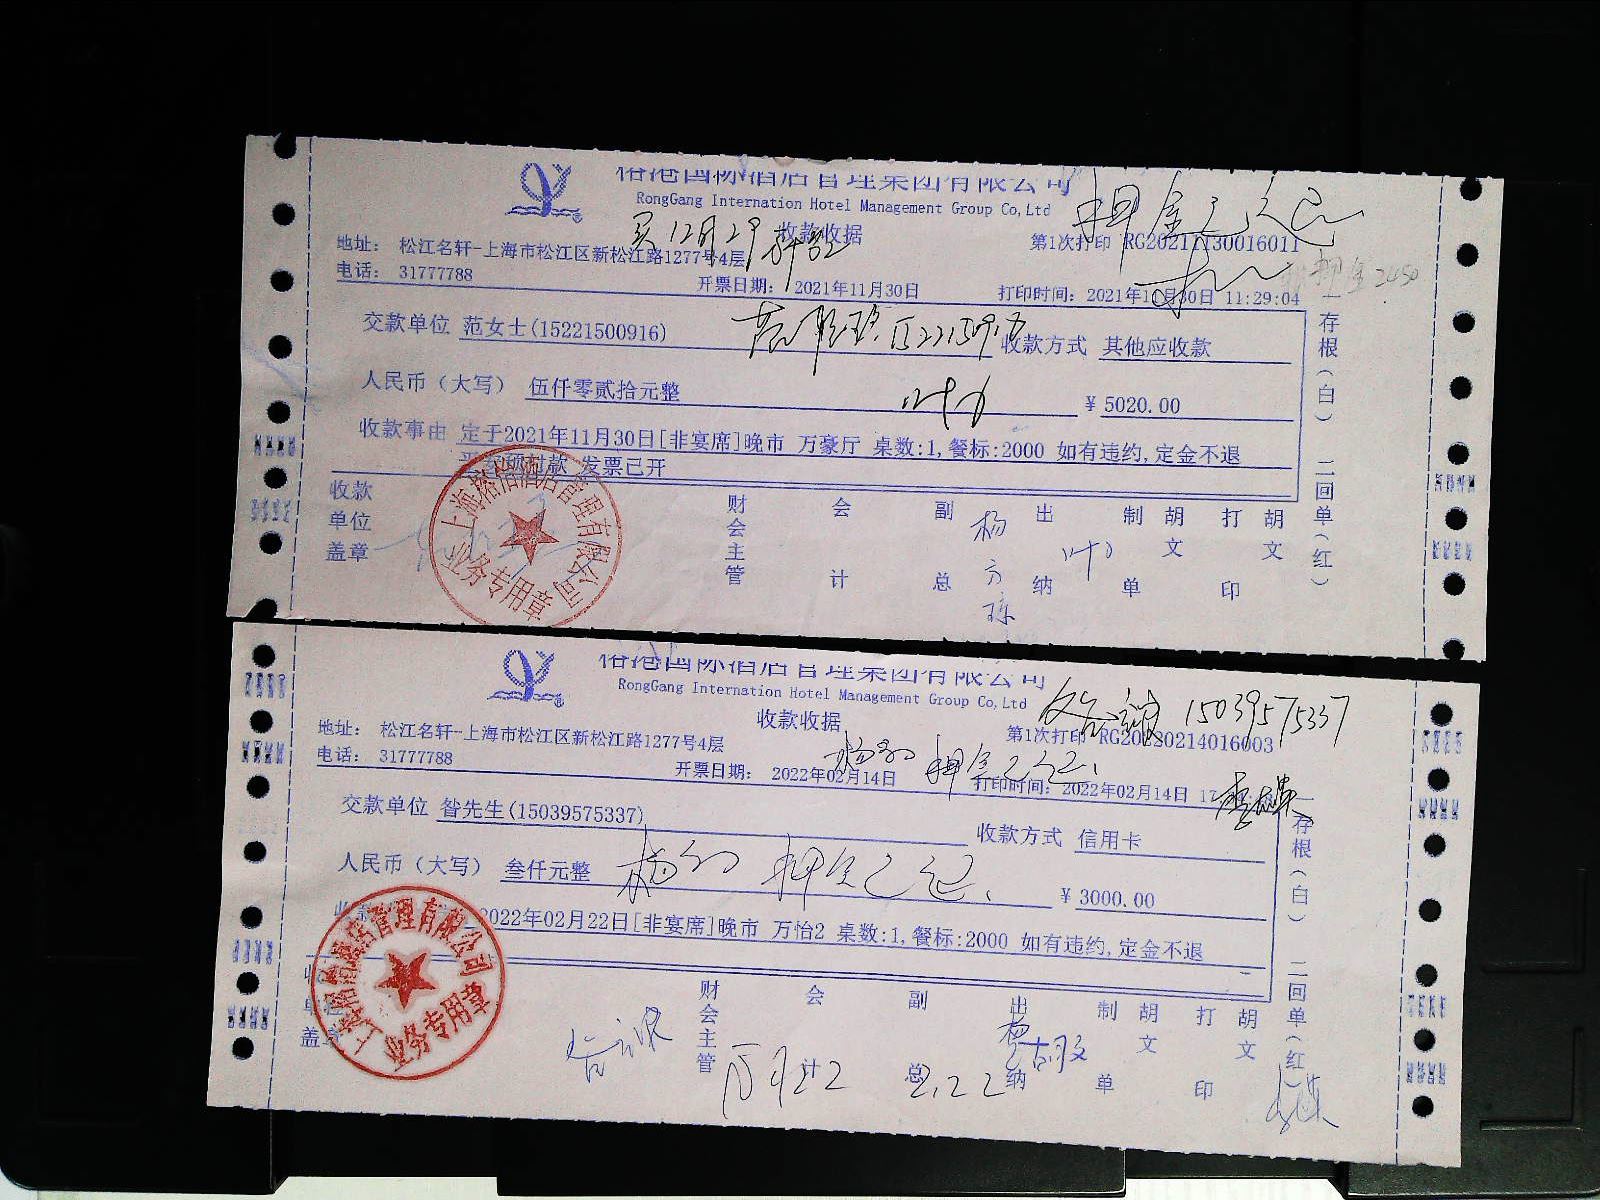 RongGang Internation Hotel Management Group Co,Ltd
收款收据
第1次打印 RG20211130016011
地址： 松江名轩-上海市松江区新松江路1277号4层
电话： 31777788
开票日期： 2021年11月30日
打印时间：2021年11月30日 11:29:04
交款单位 范女士(15221500916)
收款方式 其他应收款
人民币（大写） 伍仟零贰拾元整
￥5020.00
收款事由 定于2021年11月30日[非宴席]晚市 万豪厅 桌数:1,餐标:2000 如有违约,定金不退
发票已开
收款单位盖章
财会主管 会计 副总 出纳 制单 胡文 打印 胡文
一存根（白） 二回单（红）
上海榕港酒店管理有限公司
业务专用章
RongGang Internation Hotel Management Group Co,Ltd
收款收据
15039575337
第1次打印 RG20220214016003
地址： 松江名轩-上海市松江区新松江路1277号4层
电话： 31777788
开票日期： 2022年02月14日
打印时间：2022年02月14日 17
交款单位 昝先生(15039575337)
收款方式 信用卡
人民币（大写） 叁仟元整
￥3000.00
2022年02月22日[非宴席]晚市 万怡2 桌数:1,餐标:2000 如有违约,定金不退
财会主管 会计 副总 出纳 制单 胡文 打印 胡文
2.22
存根（白） 二回单（红）
上海榕港酒店管理有限公司
业务专用章